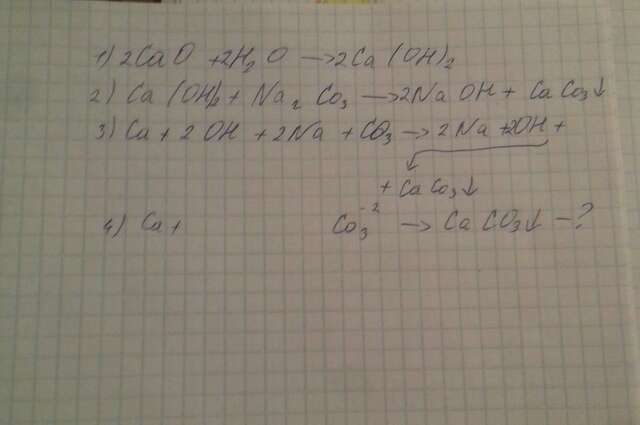 1) 2CaO + 2H₂O → 2Ca(OH)₂
2) Ca(OH)₂ + Na₂CO₃ → 2NaOH + CaCO₃↓
3) Ca + 2OH + 2Na + CO₃ → 2Na + 2OH +
+ CaCO₃↓
4) Ca + CO₃⁻² → CaCO₃↓ - ?